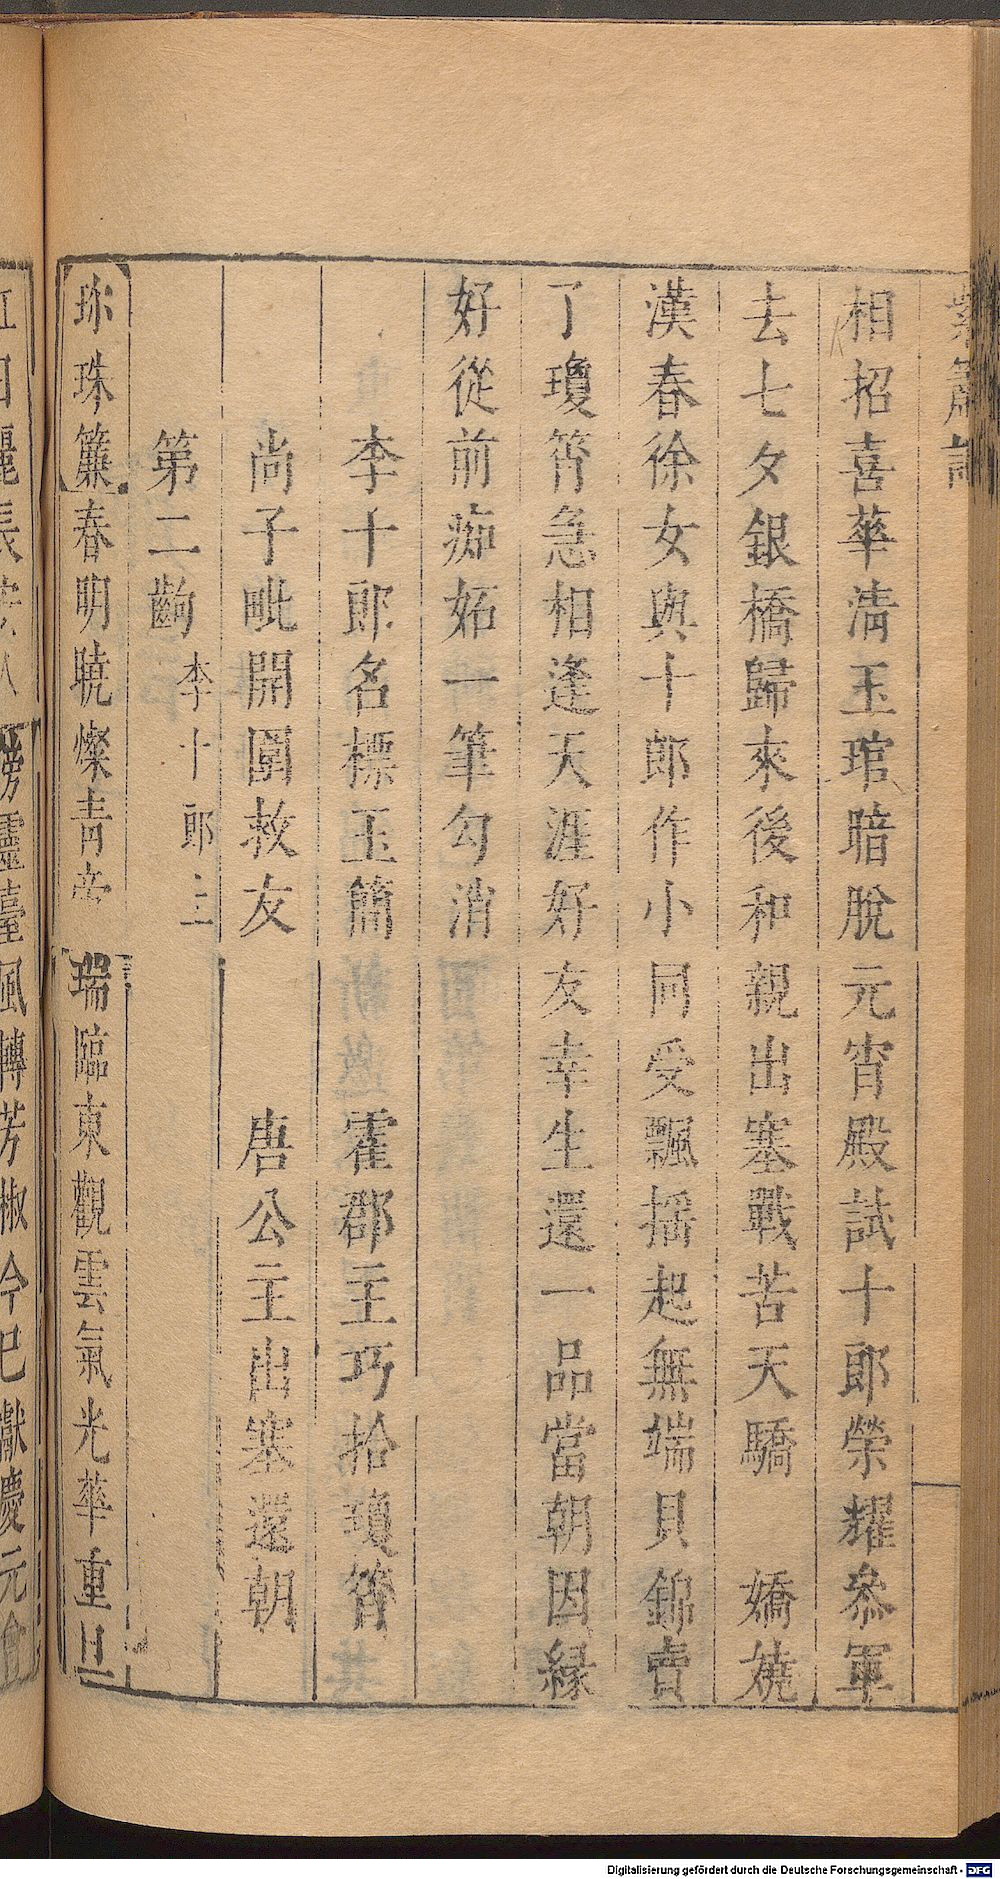 相招喜華淸玉琯暗脫元宵殿試十郎榮耀參軍
去七夕銀橋歸來後和親出塞戰苦天驕　嬌嬈
漢春徐女與十郎作小同受飄搖起無端貝錦賣
了瓊簫急相逢天涯好友幸生還一品當朝因緣
好從前痴妬一筆勾消
李十郎名標玉簡　霍郡主巧拾瓊簫
尚子毗開圍救友　唐公主出塞還朝
第二齣 李十郎上
珍珠簾 春明曉燦靑帝 瑞臨東觀雲氣光華重旦
傍靈臺風轉芳椒今巳獻慶元會
Digitalisierung gefördert durch die Deutsche Forschungsgemeinschaft - DFG